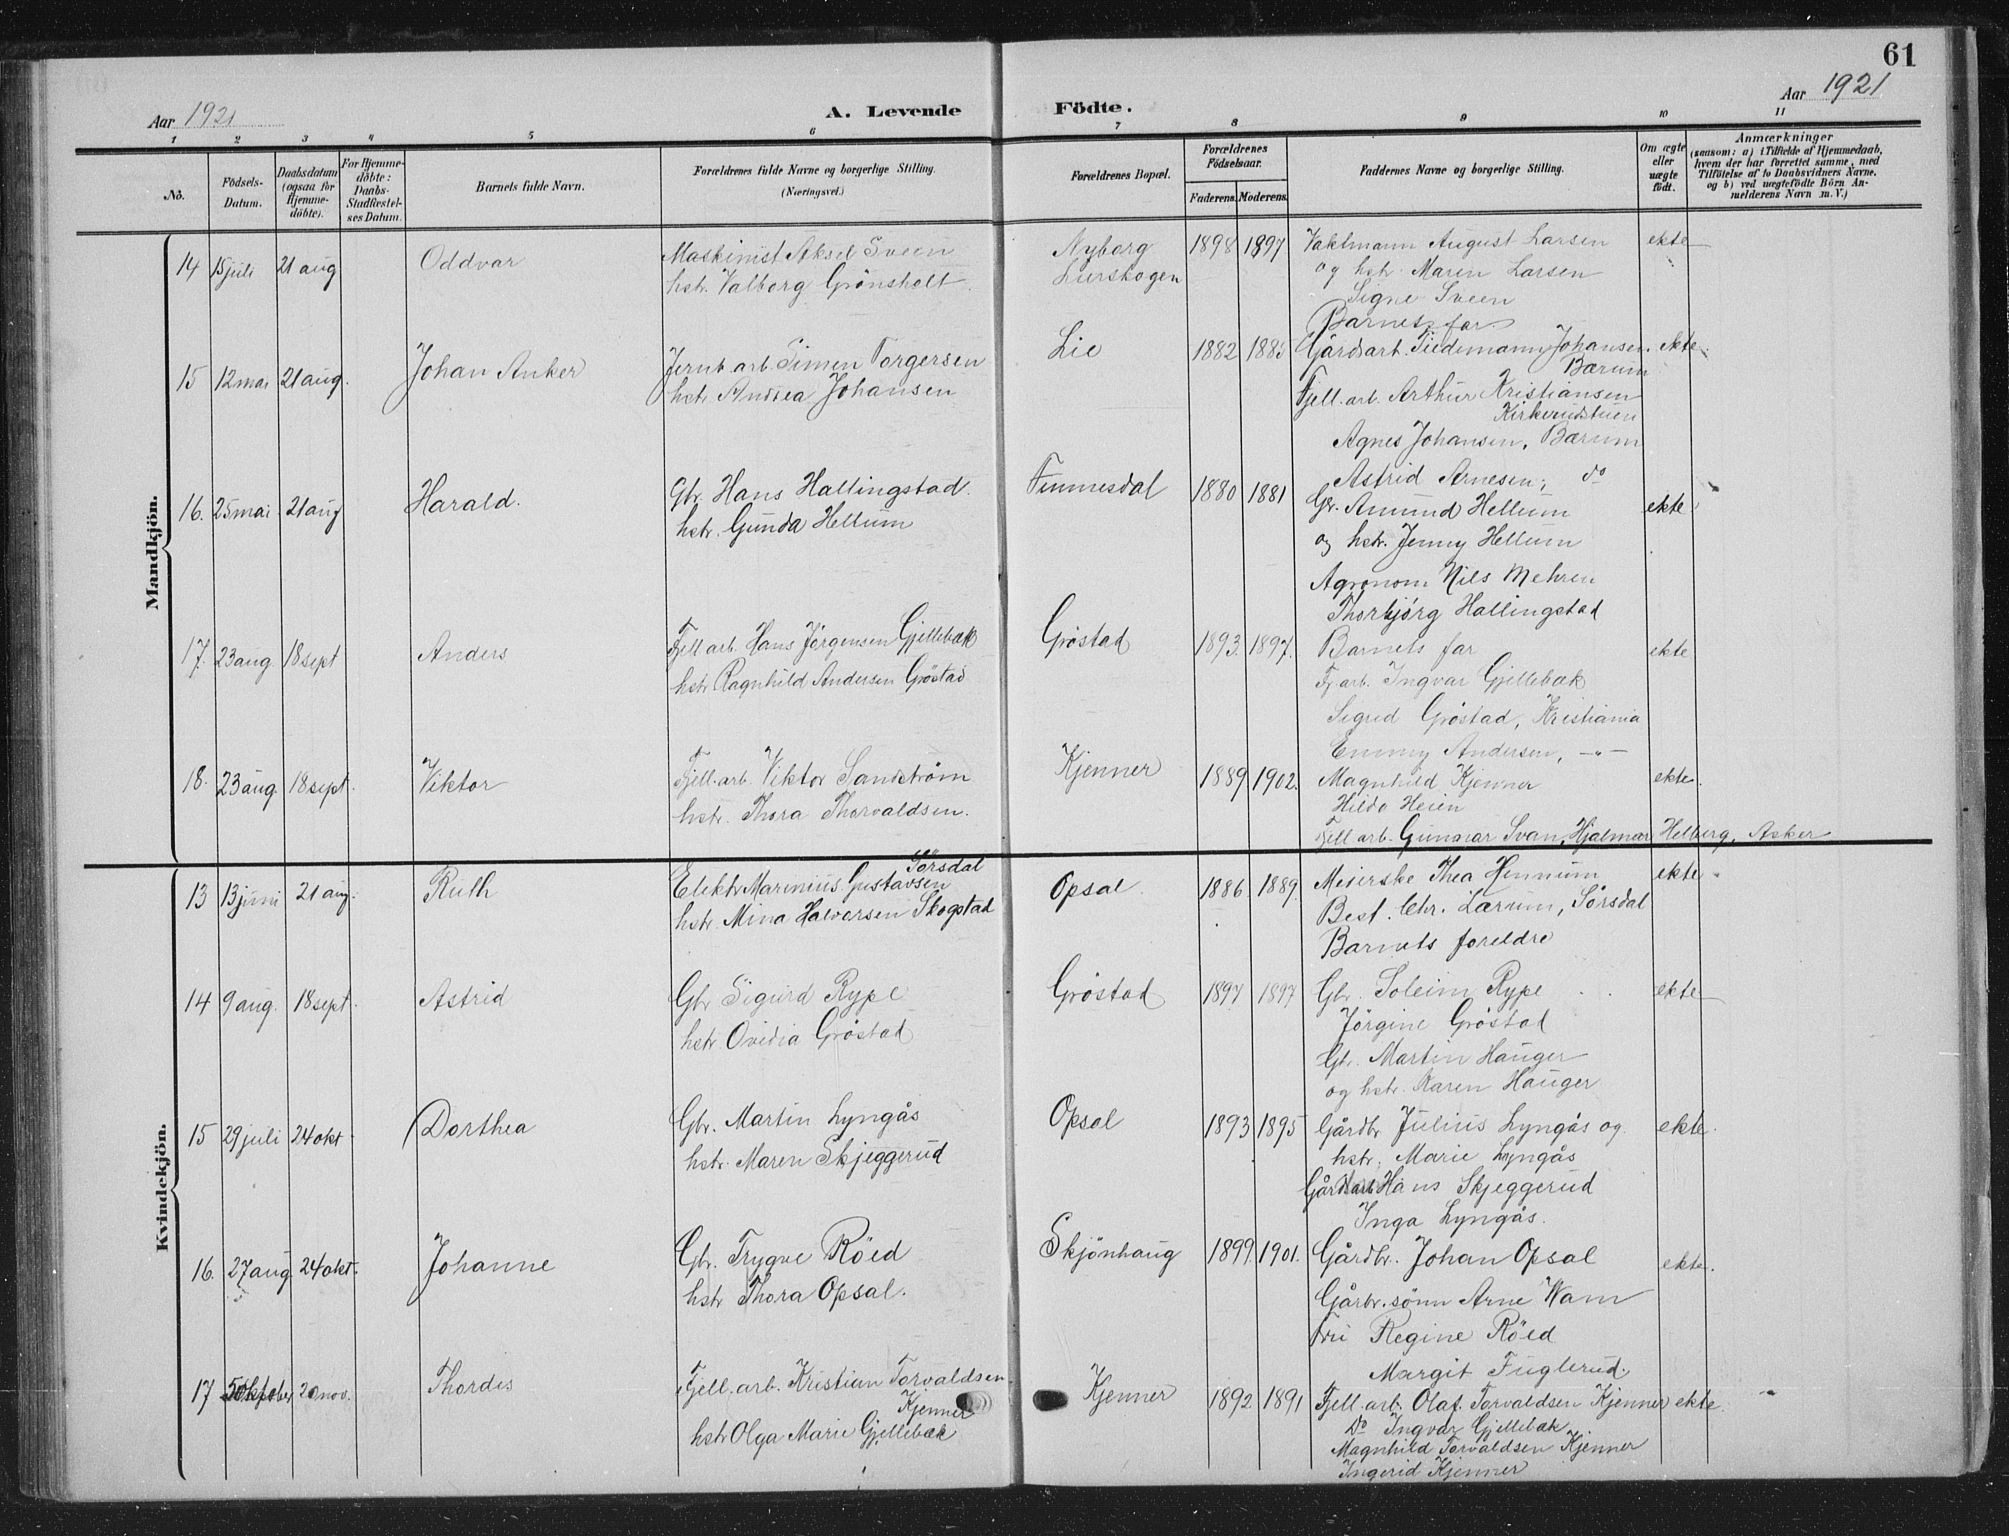 61
Aar 1921
A. Levende Födte.
Aar 1921
1 2 3 4 5 6 7 8 9 10 11
No.
Födsels-Datum.
Daabsdatum (ogsaa for Hjemme-döbte).
For Hjemme-döbte: Daabs-Stadfæstel-ses Datum.
Barnets fulde Navn.
Forældrenes fulde Navne og borgerlige Stilling. (Næringsvei.)
Forældrenes Bopæl.
Forældrenes Födselsaar.
Faderens. Moderens.
Faddernes Navne og borgerlige Stilling.
Om ægte eller uægte födt.
Anmærkninger
(saasom: a) i Tilfælde af Hjemmedaab, hvem der har forrettet samme, med Tilföielse af to Daabsvidners Navne, og b) ved uægtefödte Börn An-melderens Navn m. V.)
Mandkjön.
14 15 juli 21 aug Oddvar
Maskinist Aksel Sveen
hstr. Valborg Grönsholt.
Nyborg
Lierskogen
1898 1897
Vaktmann August Larsen
og hstr. Maren Larsen
Signe Sveen
Barnets far
ekte
15 12 mai 21 aug. Johan Anker
Jernb. arb. Simen Torgersen
hstr. Andrea Johansen
Lie
1882 1885
Gårdsarb. Tiedemann Johansen.
Bærum
Fjell. arb. Arthur Kristiansen
Kirkerudstuen
Agnes Johansen, Bærum
Astrid Arnesen, do
ekte.
16. 25 mai 21 aug Harald.
Gbr. Hans Hallingstad.
hstr. Gunda Hellum
Tvinnesdal
1880 1881
Gbr. Amund Hellum
og hstr. Jenny Hellum
Agronom Nils Mehren
Thorbjörg Hallingstad
ekte
17. 23 aug. 18 sept Anders
Fjell arb. Hans Jörgensen Gjellebæk
hstr. Ragnhild Andersen Gröstad
Gröstad
1893. 1897.
Barnets far
Fj. arb. Ingvar Gjellebæk
Sigrid Gröstad, Kristiania
Emmy Andersen, -"-
ekte
18. 23 aug 18 sept. Viktor
Fjell. arb. Viktor Sandström
hstr. Thora Thorvaldsen.
Kjenner
1889 1902.
Magnhild Kjenner
Hilda Heien
Fjell arb. Gunnar Svan, Hjalmar Helberg, Asker
ekte.
Kvindekjön.
13 13 juni 21 aug. Ruth
Sörsdal
Elektr. Marinius Gustavsen
hstr. Mina Halvorsen Skogstad
Opsal.
1886 1889.
Meierske Thea Hennum
Best. Chr. Lærum, Sörsdal
Barnets foreldre
ekte
14 9 aug. 18 sept. Astrid
Gbr. Sigurd Rype
hstr. Ovidia Gröstad
Gröstad
1897 1897
Gbr. Soleim Rype
Jörgine Gröstad
Gb. Martin Hauger
og hstr. Karen Hauger
ekte
15 29 juli 24 okt. Dorthea
Gbr. Martin Lyngås
hstr. Maren Skjeggerud
Opsal
1893 1895
Gårdbr. Julius Lyngås og
hstr. Marie Lyngås
Gårdarb. Hans Skjeggerud
Inga Lyngås.
ekte.
16. 27 aug. 24 okt. Johanne
Gbr. Trygve Röed
hstr Thora Opsal.
Skjönhaug
1899. 1901.
Gårdbr. Johan Opsal
Gårbr. sönn Arne Wam
Fru Regine Röed
Margit Fuglerud.
ekte.
17 5 oktober 20 nov. Thordis
Fjell. arb. Kristian Torvaldsen
Kjenner
hstr Olga Marie Gjellebæk
Kjenner
1892 1891
Fjell. arb. Olaf Torvaldsen Kjenner
Do Ingvar Gjellebæk.
Magnhild Torvaldsen Kjenner
Ingerid Kjenner
ekte.